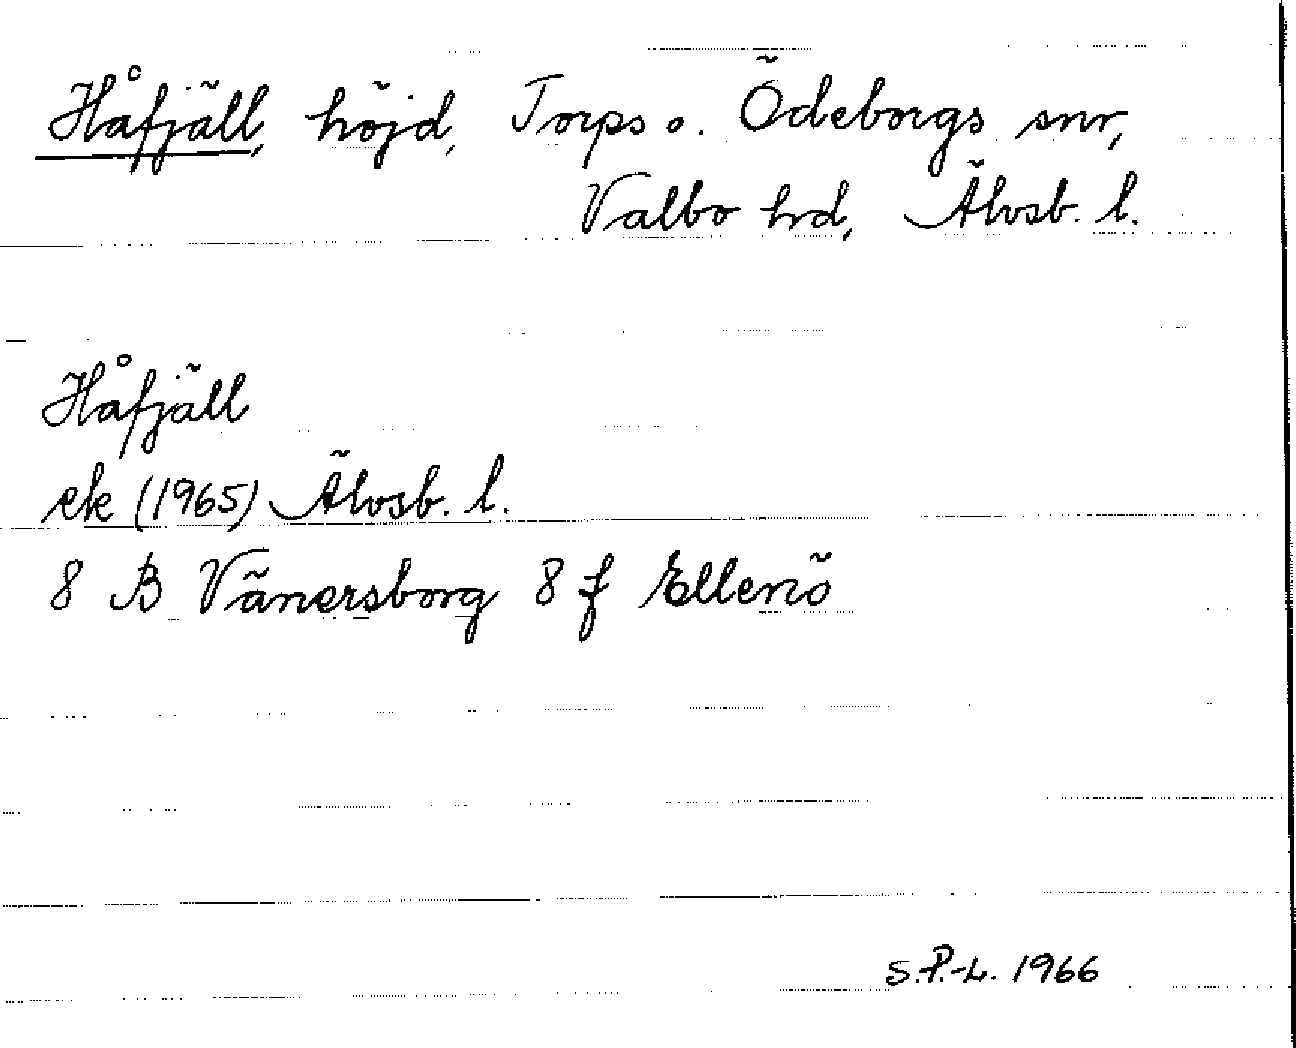 Håfjäll, höjd, Torps o. Ödeborgs snr,
Valbo hrd, Älvsb. l.
Håfjäll
ek (1965) Älvsb. l.
8 B Vänersborg 8 f Ellenö
S.P.-L. 1966